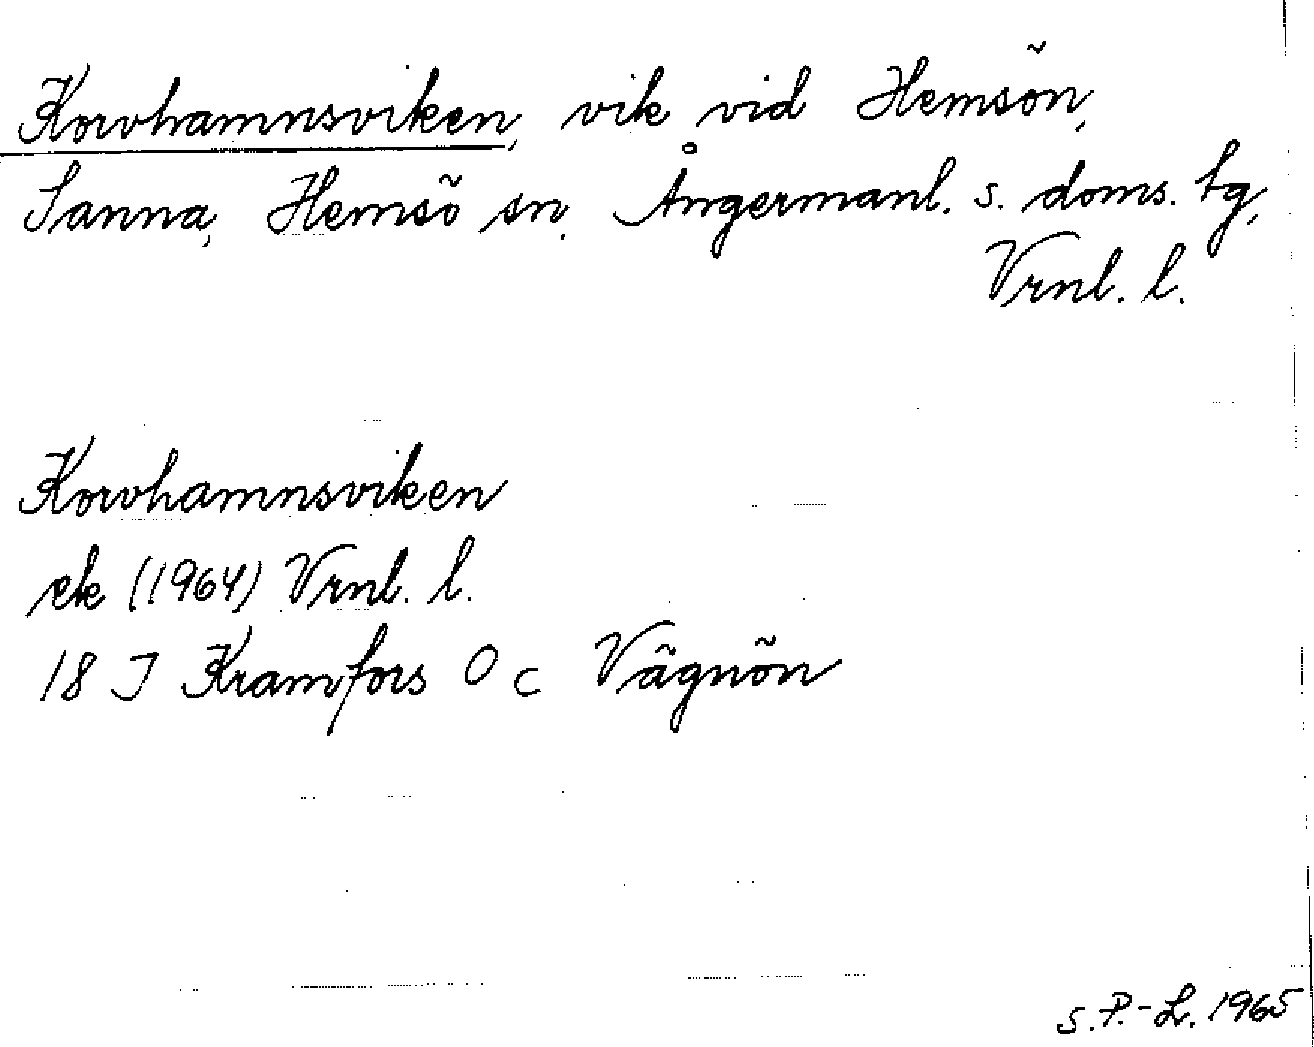 Korvhamnsviken, vik vid Hemsön,
Sanna, Hemsö sn, Ångermanl. s. doms. tg,
Vrnl. l.
Korvhamnsviken
ek (1964) Vrnl. l.
18 J Kramfors O c Vägnön
S. P.-L. 1965